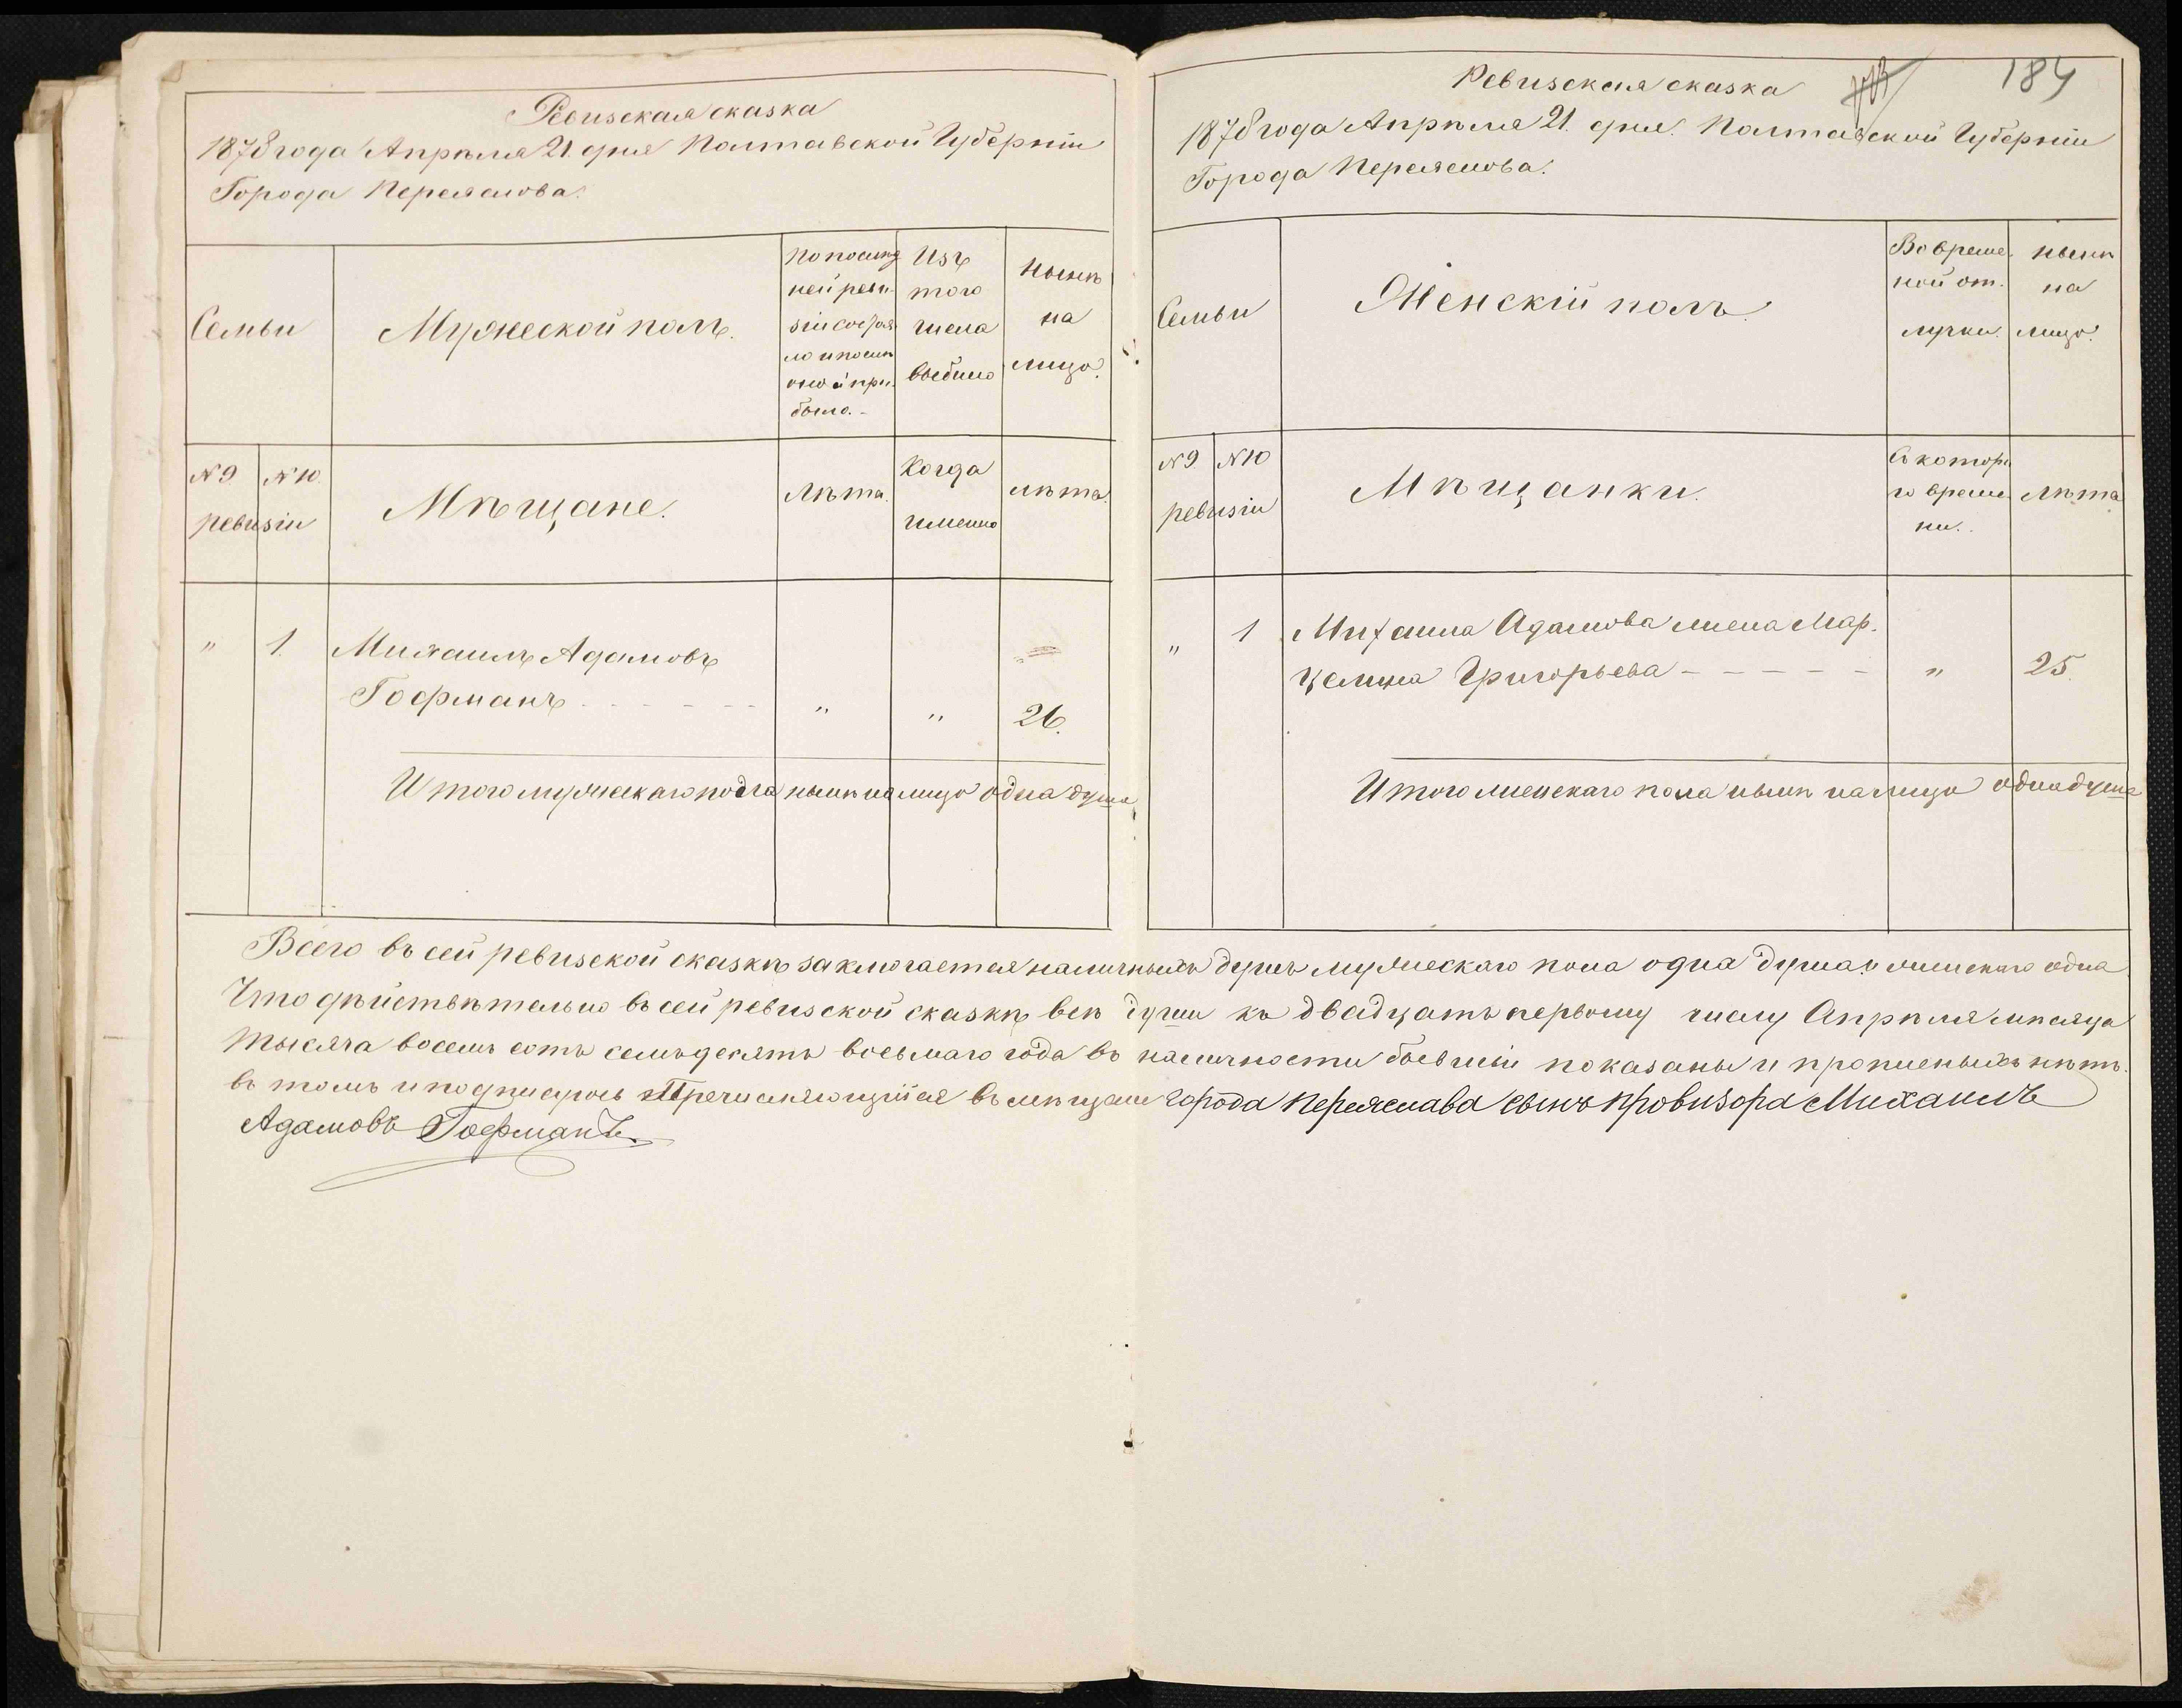 Ревизская сказка
1878 года Апрѣля 21 дня Полтавской Губерніи
Города Переяслова.
Семьи
Мужеской полъ.
По послѣд
ней реви-
зіи состоя
ло и послѣ
оной при-
было.-
Изъ
того
числа
выбыло
Нынѣ
на
лицо.
№ 9
№ 10
ревизіи
Мѣщане.
Лѣта.
Когда
именно
Лѣта.
"
1.
Михаилъ Адамовъ
Гофманъ - - - - - -
"
"
26.
Итого мужескаго пола нынѣ на лицо одна душа
Ревизская сказка
184
1878 года Апрѣля 21. дня. Полтавской Губерніи
Города Переяслова.
Семьи
Женскій полъ.
Во време-
ной от-
лучки.
Нынѣ
на
лицо.
№ 9
№ 10
ревизіи
Мѣщанки.
Съ котора
го време
ни.
Лѣта
"
1
Михаила Адамова жена Мар-
целина Григорьева - - - - -
"
25.
Итого женскаго пола нынѣ на лицо одна душа
Всего въ сей ревизской сказкѣ заключается наличныхъ душъ мужескаго пола одна душа и женскаго одна
Что дѣйствѣтельно въ сей ревизской сказкѣ всѣ души къ двадцать первому числу Апрѣля мѣсяца
тысяча восемь сотъ семьдесятъ восьмаго года въ наличности бывшіи показаны и пропиеныхъ нѣтъ.
въ томъ и подписуюсь Причисляющійся въ мѣщане города Переяслава сынъ провизора Михаилъ
Адамовъ Гофманъ